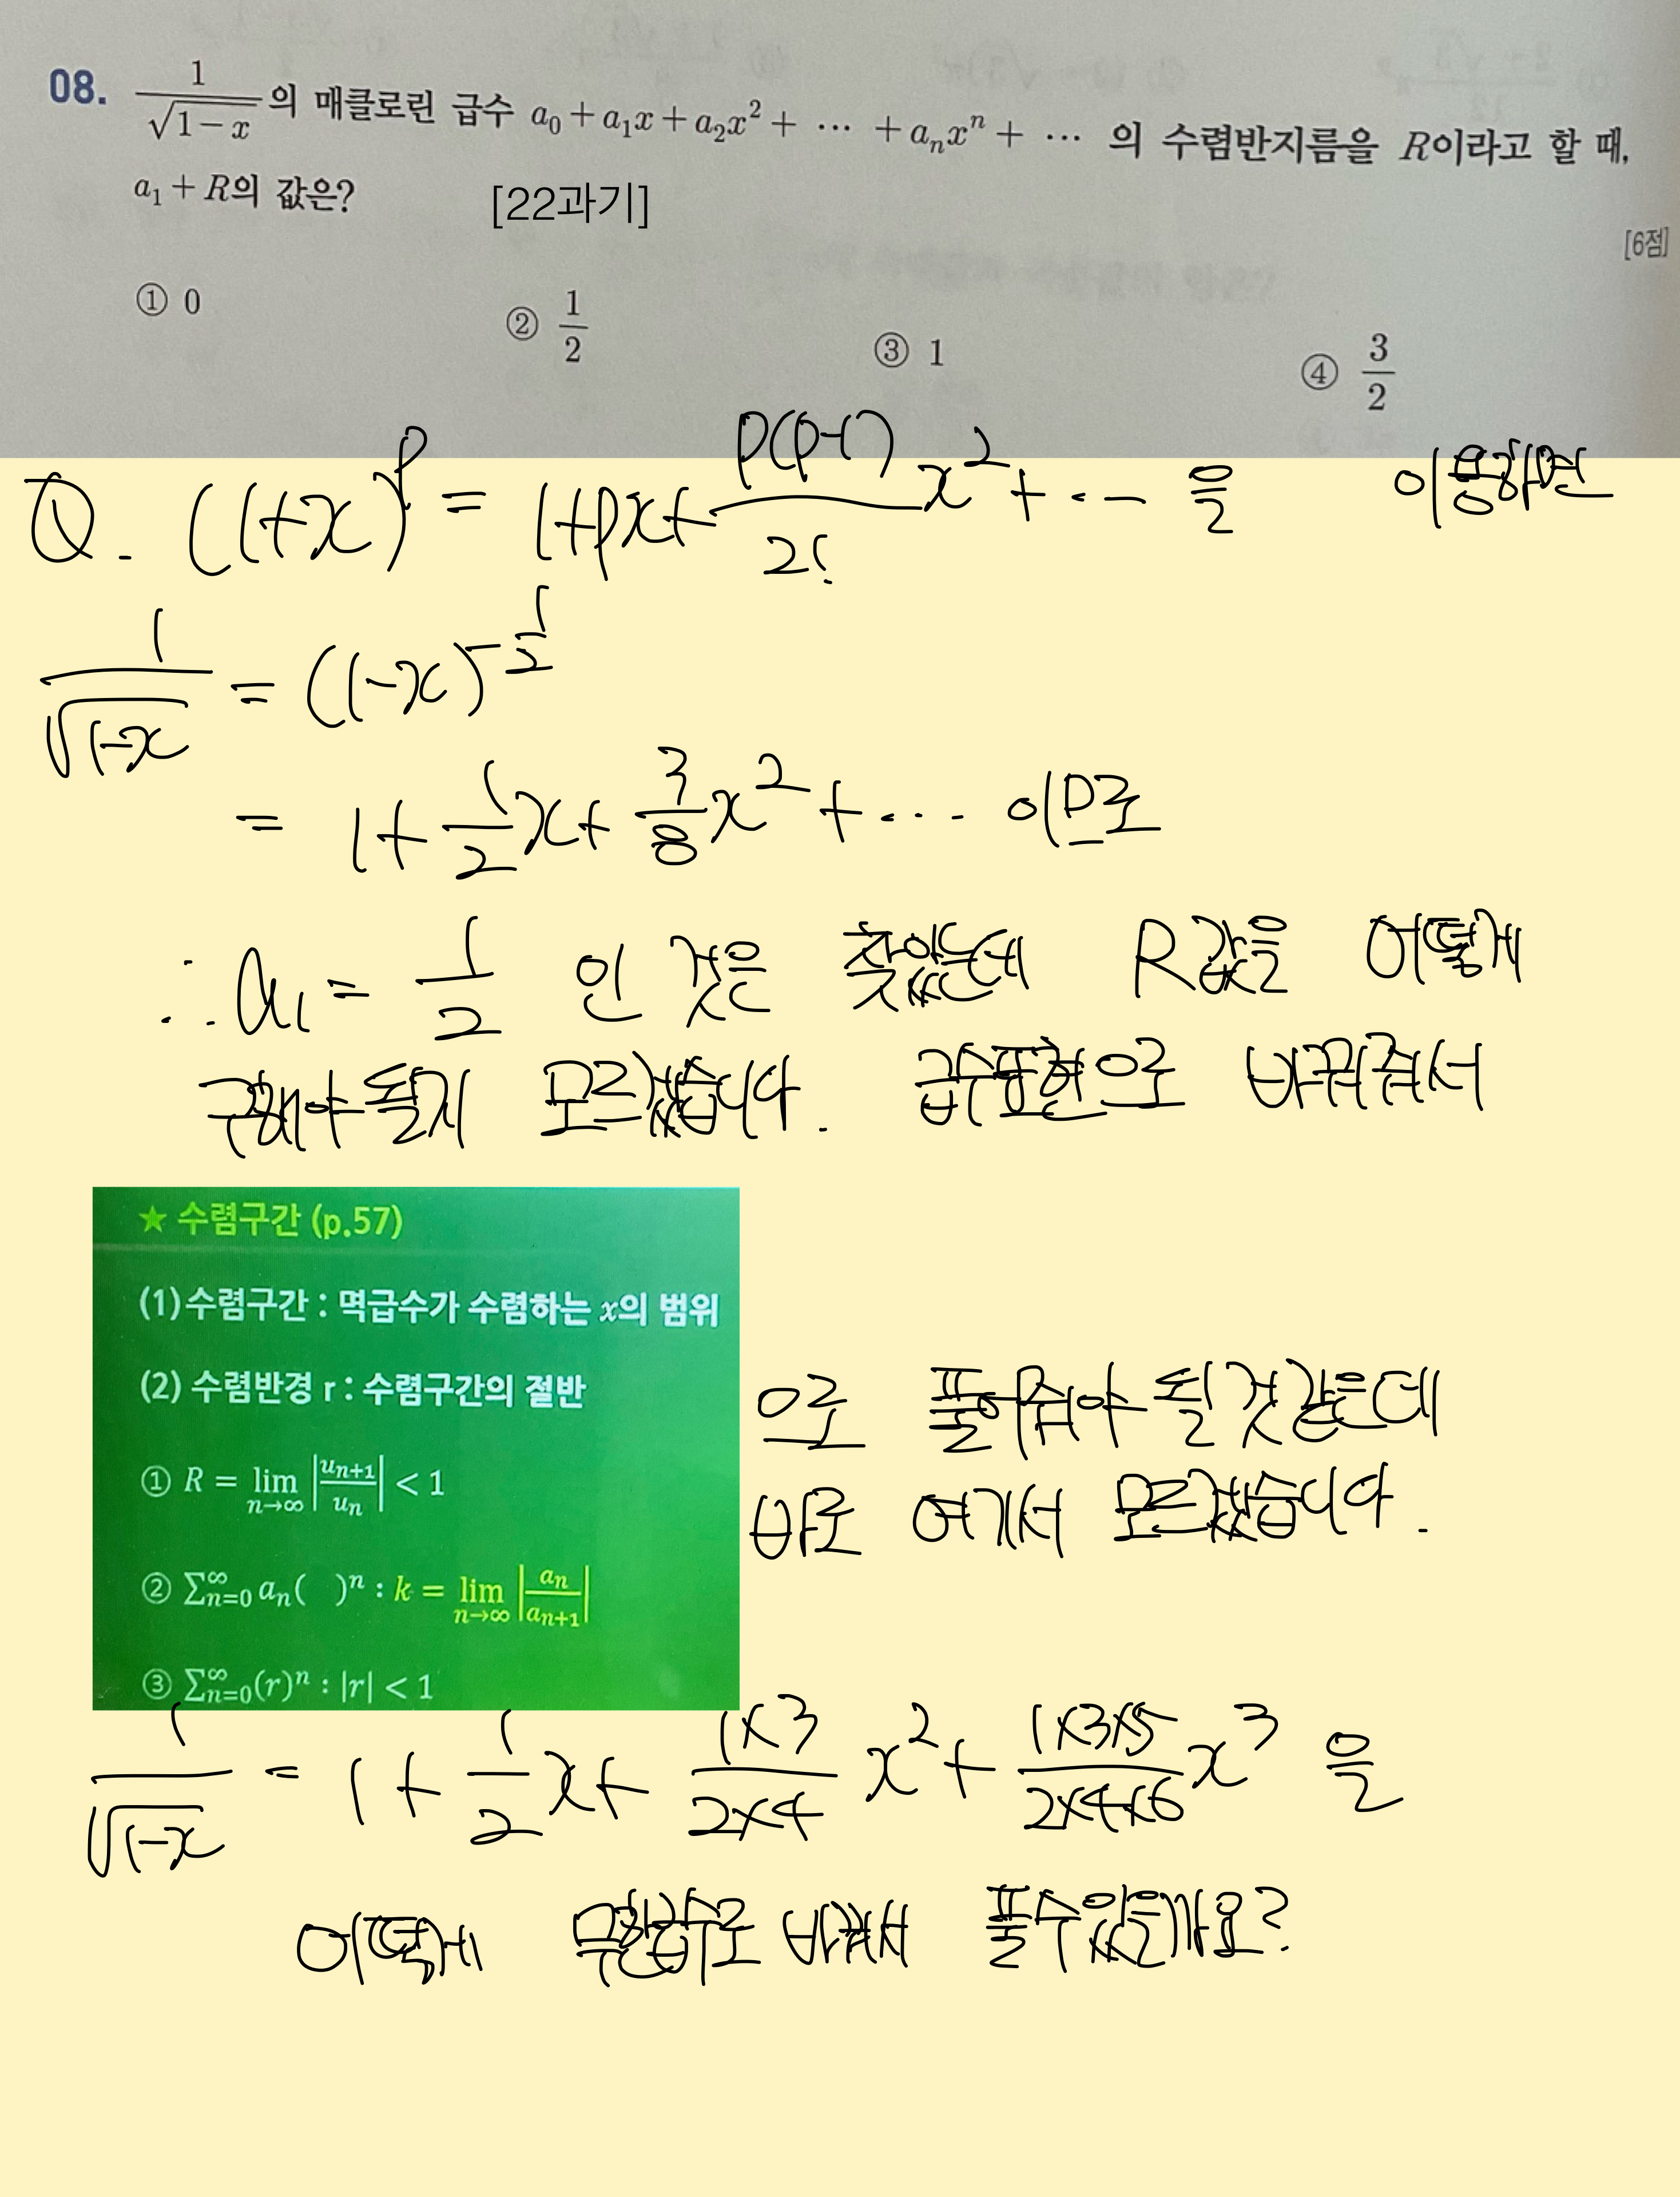 08. $\frac{1}{\sqrt{1-x}}$의 매클로린 급수 $a_0+a_1x+a_2x^2+\cdots+a_nx^n+\cdots$ 의 수렴반지름을 $R$이라고 할 때,
$a_1+R$의 값은? [22과기]
[6점]
① 0 ② $\frac{1}{2}$ ③ 1 ④ $\frac{3}{2}$
Q. $(1+x)^p = 1+px+\frac{p(p-1)}{2!}x^2+\cdots$ 을 이용하면
$\frac{1}{\sqrt{1-x}} = (1-x)^{-\frac{1}{2}}$
$= 1+\frac{1}{2}x+\frac{3}{8}x^2+\cdots$ 이므로
$\therefore a_1 = \frac{1}{2}$ 인 것은 찾았는데 R값을 어떻게
구해야 될지 모르겠습니다. 급수표현으로 바꿔줘서
★ 수렴구간 (p.57)
(1) 수렴구간 : 멱급수가 수렴하는 $x$의 범위
(2) 수렴반경 r : 수렴구간의 절반
① $R = \lim_{n\to\infty}\left|\frac{u_{n+1}}{u_n}\right| < 1$
② $\sum_{n=0}^{\infty} a_n(\ \ )^n : k = \lim_{n\to\infty}\left|\frac{a_n}{a_{n+1}}\right|$
③ $\sum_{n=0}^{\infty}(r)^n : |r| < 1$
으로 풀어줘야 될것같은데
바로 여기서 모르겠습니다.
$\frac{1}{\sqrt{1-x}} = 1+\frac{1}{2}x+\frac{1\times3}{2\times4}x^2+\frac{1\times3\times5}{2\times4\times6}x^3$ 을
어떻게 무한급수로 바꿔서 풀수있을까요?